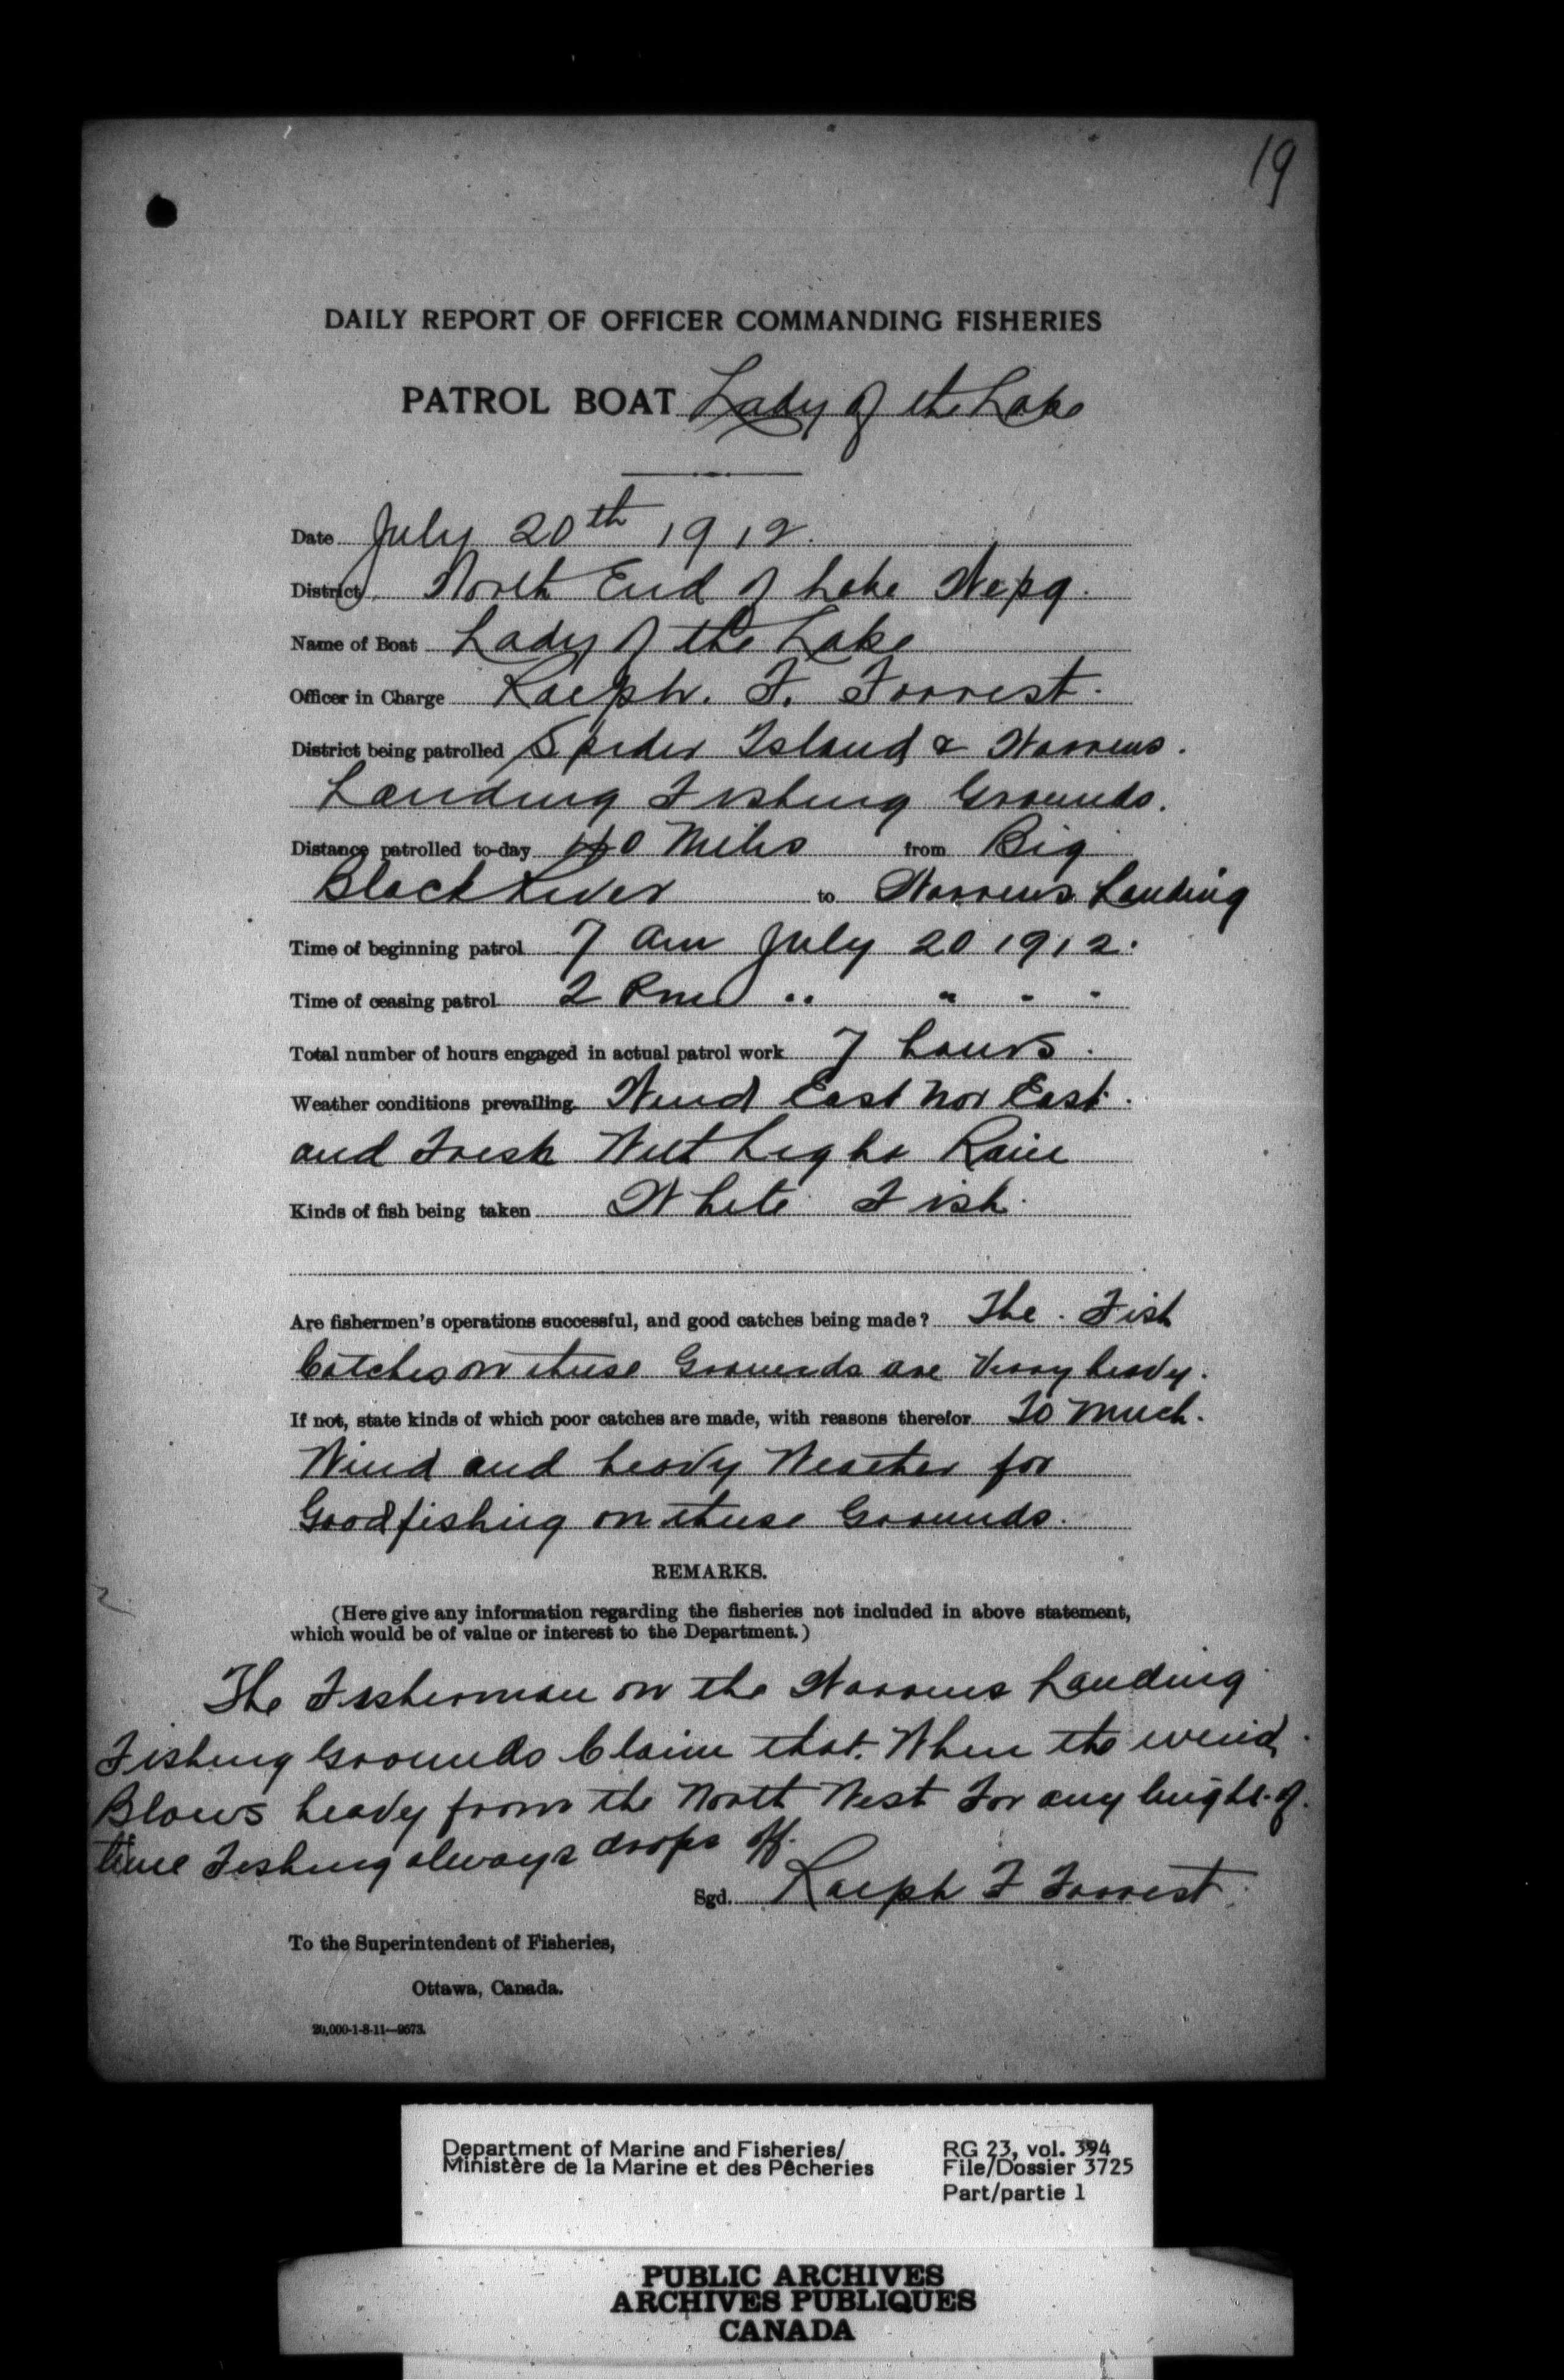 19
DAILY REPORT OF OFFICER COMMANDING FISHERIES
PATROL BOAT Lady of the Lake
Date July 20th 1912.
District North End of Lake Wepg.
Name of Boat Lady of the Lake
Officer in Charge Ralph. F. Forrest.
District being patrolled Spider Island & Warrens.
Landing Fishing Grounds.
Distance patrolled to-day Miles from Big
Black River to Warrens Landing
Time of beginning patrol 7 am July 20 1912.
Time of ceasing patrol 2 Pm " " " "
Total number of hours engaged in actual patrol work 7 hours.
Weather conditions prevailing Wind East Nor East.
and Fresh With Light Rain
Kinds of fish being taken White Fish.
Are fishermen's operations successful, and good catches being made? The. Fish
Catches on these Grounds are Verry heavy.
If not, state kinds of which poor catches are made, with reasons therefor To Much.
Wind and heavy Weather for
Good fishing on these Grounds.
REMARKS.
(Here give any information regarding the fisheries not included in above statement,
which would be of value or interest to the Department.)
The Fisherman on the Warrens Landing
Fishing Grounds Claim that. When the wind
Blows heavy from the North West For any leight of.
time Fishing always drops off.
Sgd. Ralph F Forrest
To the Superintendent of Fisheries,
Ottawa, Canada.
20,000-1-8-11—9573.
Department of Marine and Fisheries/ RG 23, vol. 394
Ministère de la Marine et des Pêcheries File/Dossier 3725
Part/partie 1
PUBLIC ARCHIVES
ARCHIVES PUBLIQUES
CANADA